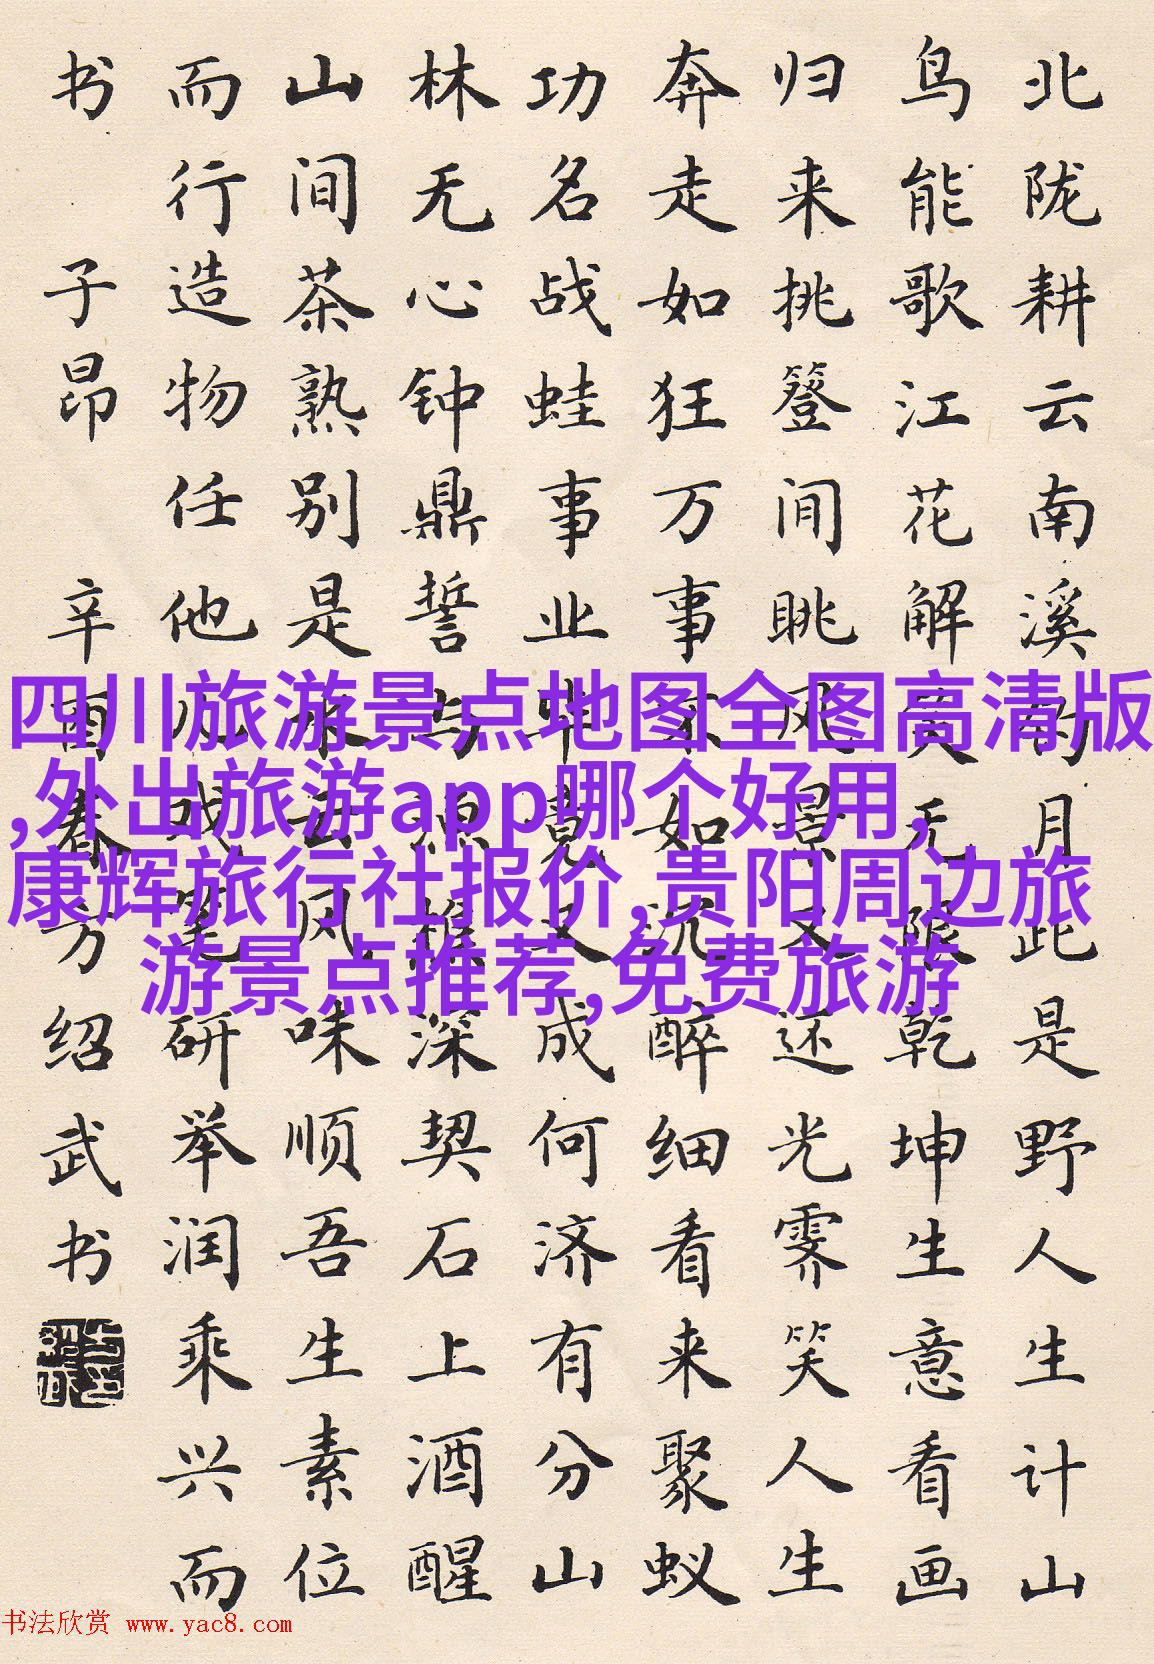 北陇耕云南溪钓月此是野人生计山
鸟能歌江花解笑无限乾坤生意看画
归来挑簦间眺风景又还光霁笑人生
奔走如狂万事不如沉醉细看来聚蚁
功名战蛙事业毕竟又成何济有分山
林无心钟鼎誓与渔樵深契石上酒醒
山间茶熟别是水云风味顺吾生素位
而行造物任他儿戏笔研举润乘兴而
书 子昂 辛酉春方绍武书
四川旅游景点地图全图高清版
,外出旅游app哪个好用,
康辉旅行社报价,贵阳周边旅
游景点推荐,免费旅游
书法欣赏 www.yac8.com